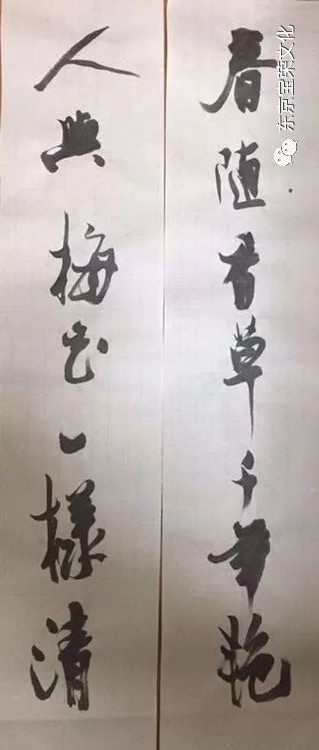 春随香草千年艳
人與梅花一樣清
东京宝荣文化